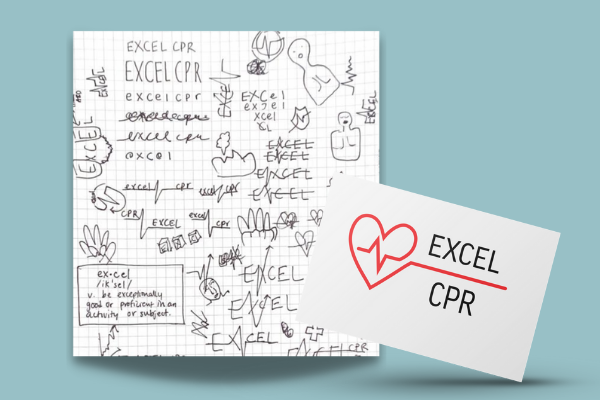 EXCEL CPR
EXCEL CPR
excel cpr
excel cpr
excel
EXCEL
EXCEL
EXCel
excel
xcel
XL
EXCEL
EXCEL
EXCEL
EXCEL
EXCEL
excel cpr
excel cpr
CPR
EXCEL
excel
cpr
ex·cel
/ik'sel/
v. be exceptionally
good or proficient in an
activity or subject.
EXCEL
EXCEL
EXCEL
EXCEL
CPR